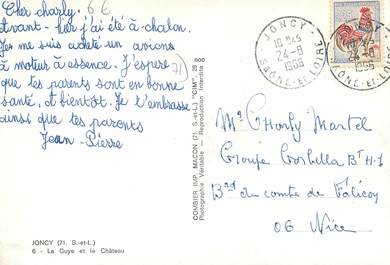 Cher charly. 6€
Avant-hier j'ai été à chalon.
Je me suis acheté un avions
à moteur à essence. J'espère
que tes parents sont en bonne
santé, a bientot. Je t'embrasse
ainsi que tes parents
Jean-Pierre
71
JONCY (71. S.-et-L.)
6 - La Guye et le Château
COMBIER IMP. MACON (71. S.-et-L.) "CIM" 36 000
Photographie Véritable — Reproduction Interdite
JONCY
18H45
24-8
1966
SAÔNE-ET-LOIRE
Mr Charly Martel
Groupe Corbella Bt H-1
Bvd du comte de Falicon
06 Nice